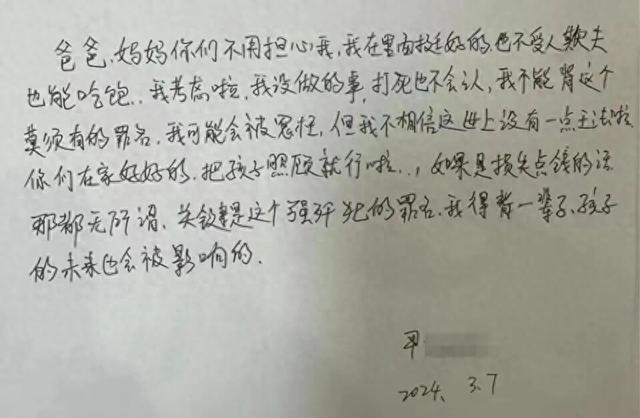 爸爸,妈妈你们不用担心我,我在里面挺好的,也不受人欺夫
也能吃饱..我考虑啦,我没做的事,打死也不会认,我不能背这个
莫须有的罪名,我可能会被冤枉,但我不相信这世上没有一点王法啦
你们在家好好的,把孩子照顾就行啦..,如果是损失点钱的话
那都无所谓,关键是这个强奸犯的罪名,我得背一辈子,孩子
的未来也会被影响的.
2024、3.7